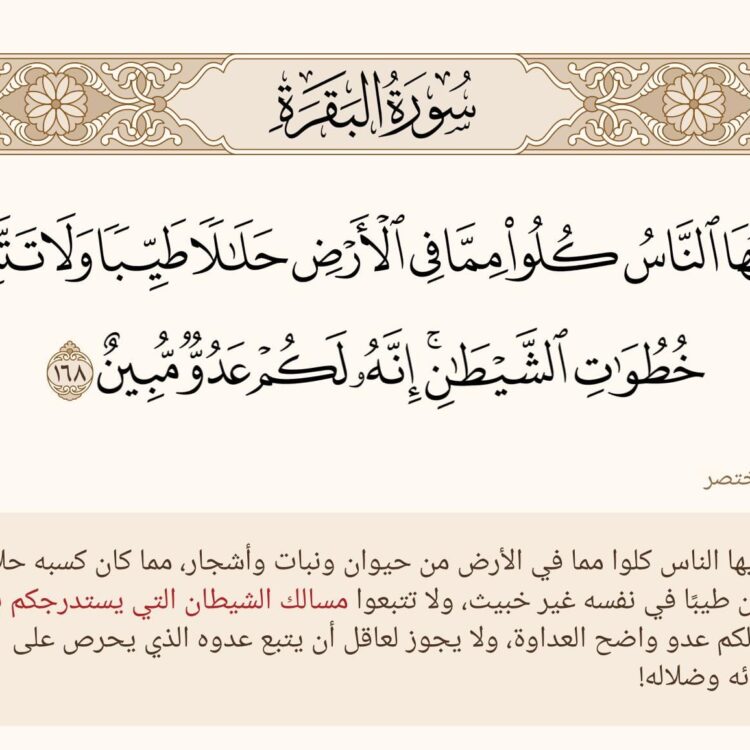 سُورَةُ البَقَرَةِ
ٱلنَّاسُ كُلُوا۟ مِمَّا فِى ٱلْأَرْضِ حَلَـٰلًا طَيِّبًا وَلَا
خُطُوَٰتِ ٱلشَّيْطَـٰنِ ۚ إِنَّهُۥ لَكُمْ عَدُوٌّ مُّبِينٌ ١٦٨
الناس كلوا مما في الأرض من حيوان ونبات وأشجار، مما كان كسبه
طيبًا في نفسه غير خبيث، ولا تتبعوا مسالك الشيطان التي يستدرجكم
لكم عدو واضح العداوة، ولا يجوز لعاقل أن يتبع عدوه الذي يحرص على
وضلاله!